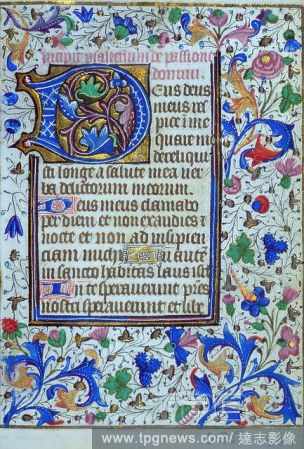 Incipit psalterium de passione
domini.
Deus deus
meus res
pice i me
quare me
dereliqui
sti longe a salute mea uer
ba delictorum meorum.
Deus meus clamabo
per diem et non exaudies &
nocte et non ad insipien
ciam michi Tu autē
in sancto habitas laus isrl
In te sperauerunt pres
nostri sperauerunt et libe
www.tpgnews.com/ 達志影像